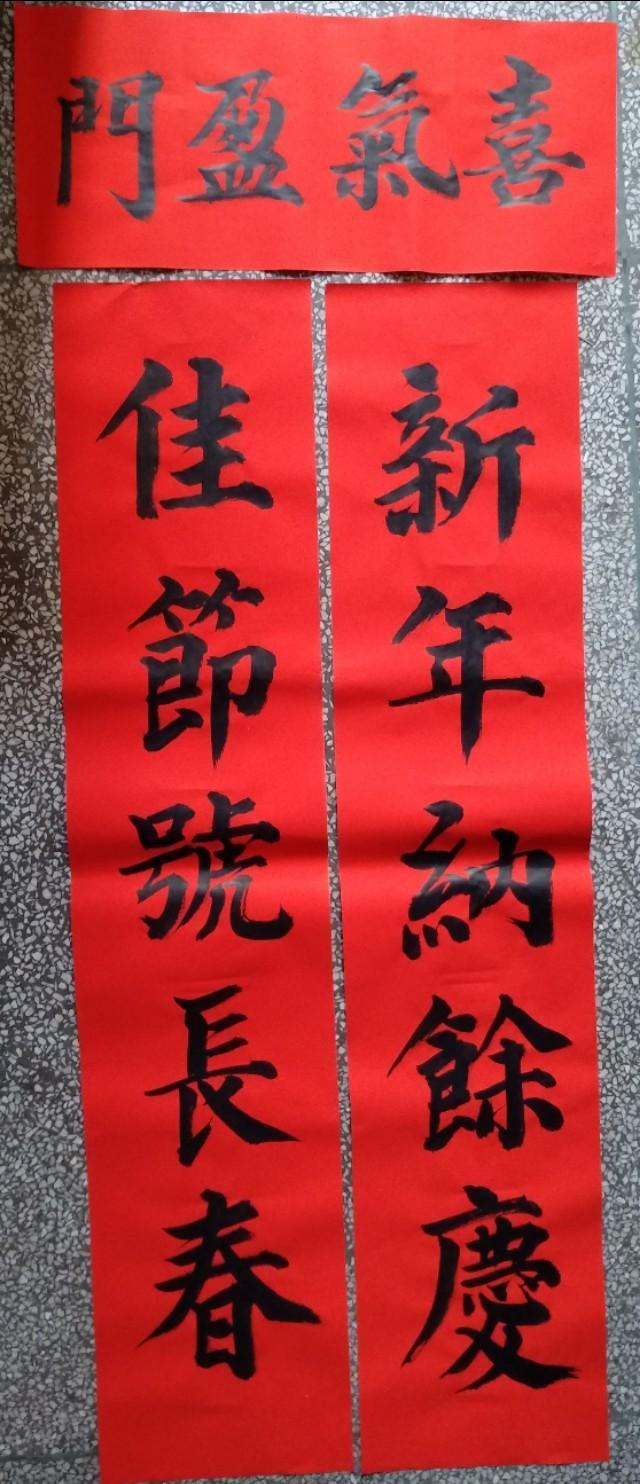 喜氣盈門
新年納餘慶
佳節號長春